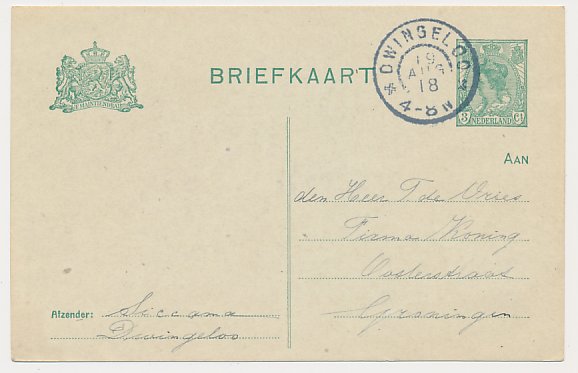 BRIEFKAART
DWINGELOO
19
AUG
18
4-8 N
3 Ct
NEDERLAND
JE MAINTIENDRAI
AAN
den Heer T de Vries
Firma Koning
Oosterstraat
Groningen
Afzender: Siccama
Dwingeloo